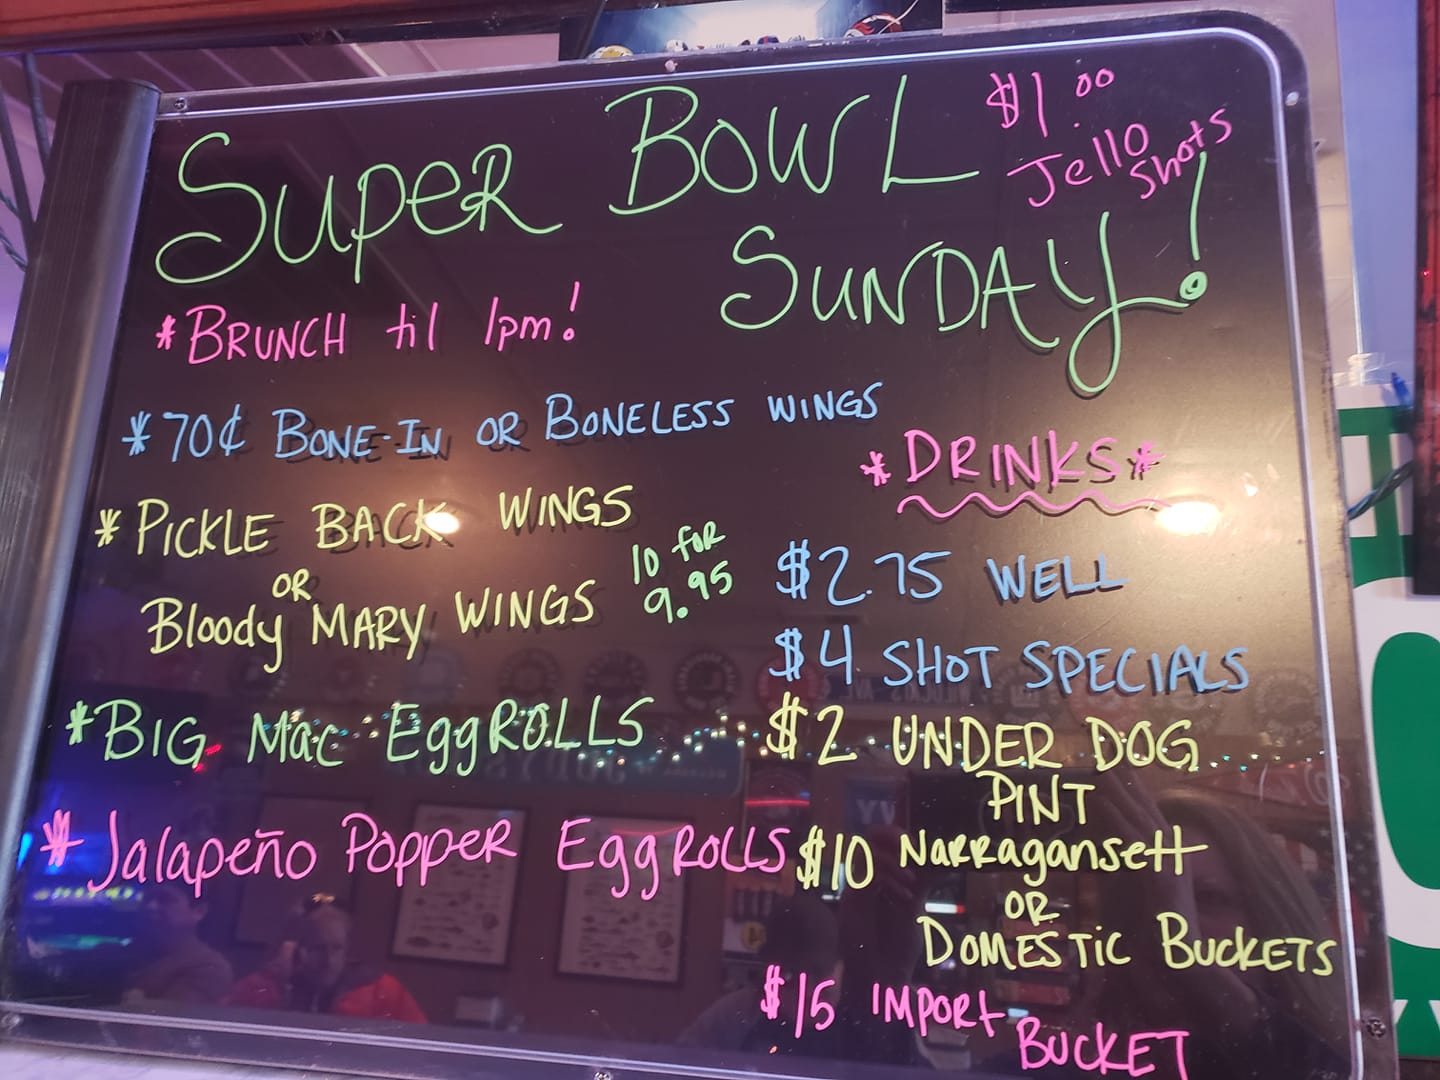 SUPER BOWL
SUNDAY!
$1.00
Jello
Shots
*BRUNCH til 1pm!
*70¢ BONE-IN OR BONELESS WINGS
*PICKLE BACK WINGS
OR
Bloody MARY WINGS
10 for
9.95
*BIG Mac EggROLLS
*Jalapeño Popper EggROLLS
*DRINKS*
$2.75 WELL
$4 SHOT SPECIALS
$2 UNDER DOG
PINT
$10 Narragansett
OR
DOMESTIC BUCKETS
$15 IMPORT
BUCKET